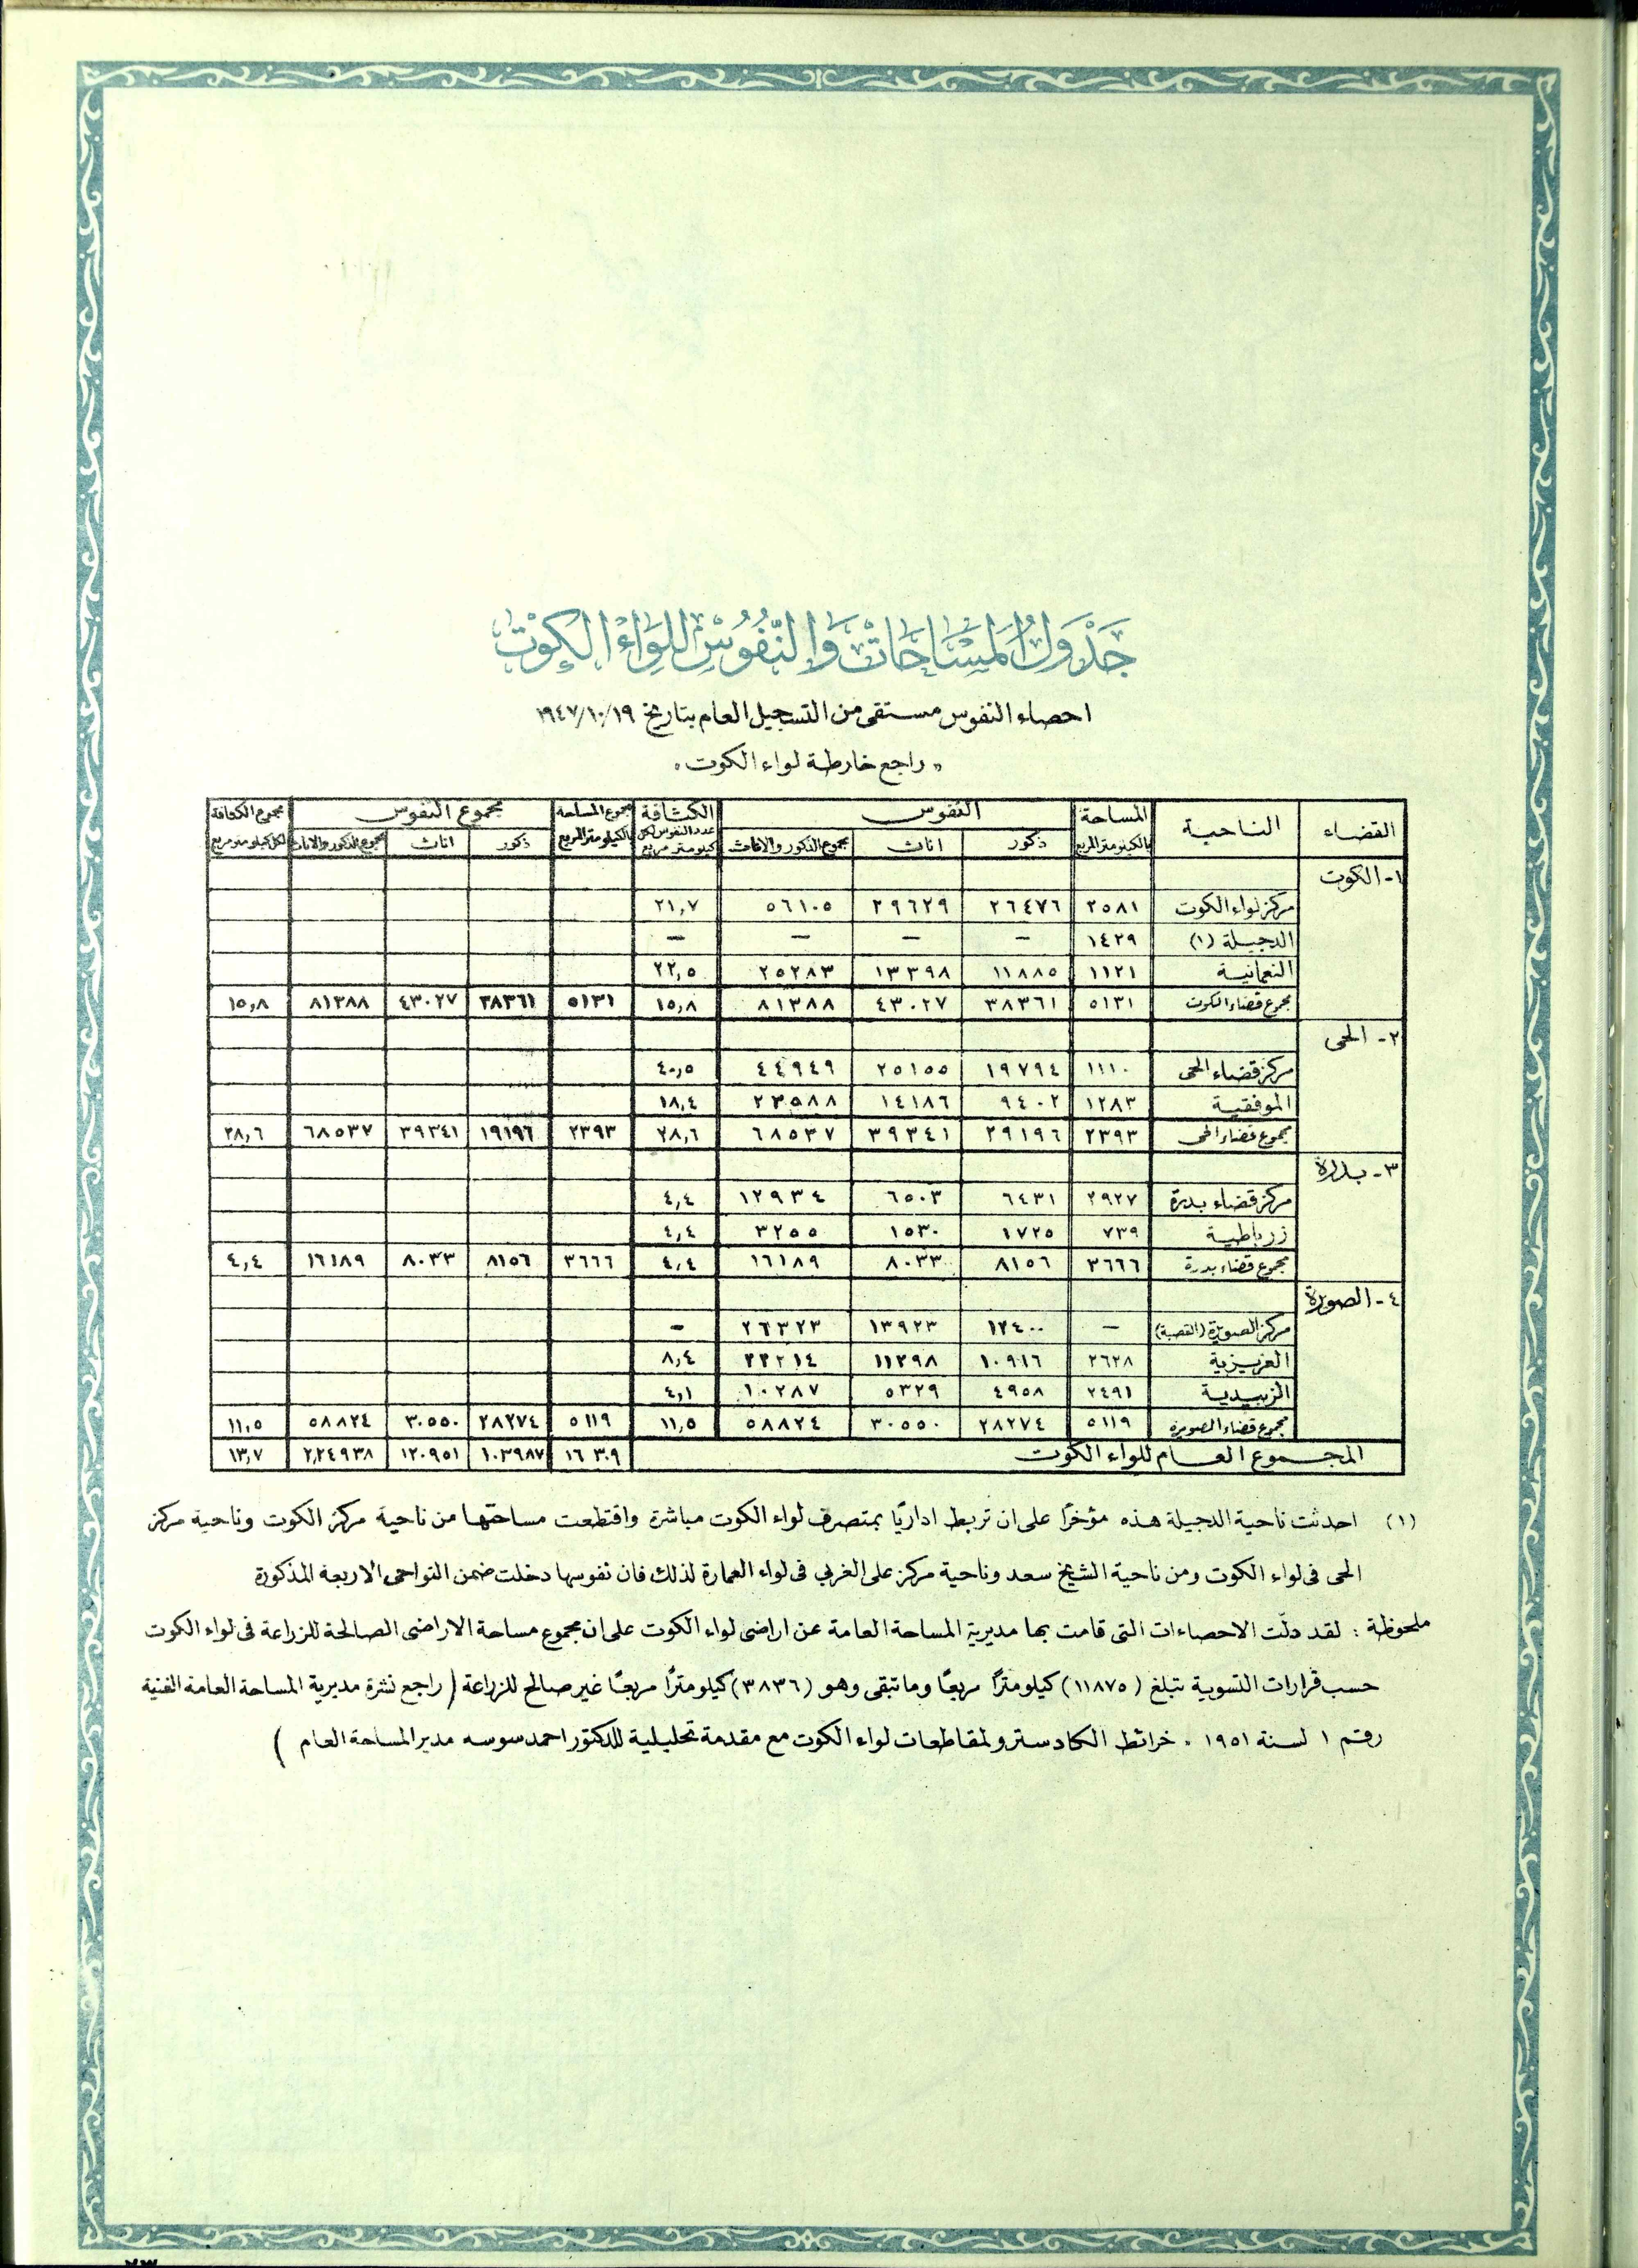 جَدْوَلُ المَسَاحَاتْ وَالنُّفُوسْ للِوَاءْ الكُوتْ
احصاء النفوس مستقى من التسجيل العام بتاريخ ١٩٤٧/١٠/١٩
« راجع خارطة لواء الكوت »
القضاء الناحية المساحة بالكيلومتر المربع النفوس الكثافة عدد النفوس لكل كيلومتر مربع مجموع المساحة بالكيلومتر المربع مجموع النفوس مجموع الكثافة لكل كيلومتر مربع
ذكور اناث مجموع الذكور والاناث ذكور اناث مجموع الذكور والاناث
١- الكوت
مركز لواء الكوت ٢٥٨١ ٢٦٤٧٦ ٢٩٦٢٩ ٥٦١٠٥ ٢١,٧
الدجيلة (١) ١٤٢٩ — — — —
النعمانية ١١٢١ ١١٨٨٥ ١٣٣٩٨ ٢٥٢٨٣ ٢٢,٥
مجموع قضاء الكوت ٥١٣١ ٣٨٣٦١ ٤٣٠٢٧ ٨١٣٨٨ ١٥,٨ ٥١٣١ ٣٨٣٦١ ٤٣٠٢٧ ٨١٣٨٨ ١٥,٨
٢- الحى
مركز قضاء الحى ١١١٠ ١٩٧٩٤ ٢٥١٥٥ ٤٤٩٤٩ ٤٠,٥
الموفقية ١٢٨٣ ٩٤٠٢ ١٤١٨٦ ٢٣٥٨٨ ١٨,٤
مجموع قضاء الحى ٢٣٩٣ ٢٩١٩٦ ٣٩٣٤١ ٦٨٥٣٧ ٢٨,٦ ٢٣٩٣ ١٩١٩٦ ٣٩٣٤١ ٦٨٥٣٧ ٢٨,٦
٣- بدرة
مركز قضاء بدرة ٢٩٢٧ ٦٤٣١ ٦٥٠٣ ١٢٩٣٤ ٤,٤
زرباطية ٧٣٩ ١٧٢٥ ١٥٣٠ ٣٢٥٥ ٤,٤
مجموع قضاء بدرة ٣٦٦٦ ٨١٥٦ ٨٠٣٣ ١٦١٨٩ ٤,٤ ٣٦٦٦ ٨١٥٦ ٨٠٣٣ ١٦١٨٩ ٤,٤
٤- الصويرة
مركز الصويرة (القصبة) — ١٢٤٠٠ ١٣٩٢٣ ٢٦٣٢٣ -
العزيزية ٢٦٢٨ ١٠٩١٦ ١١٢٩٨ ٢٢٢١٤ ٨,٤
الزبيدية ٢٤٩١ ٤٩٥٨ ٥٣٢٩ ١٠٢٨٧ ٤,١
مجموع قضاء الصويرة ٥١١٩ ٢٨٢٧٤ ٣٠٥٥٠ ٥٨٨٢٤ ١١,٥ ٥١١٩ ٢٨٢٧٤ ٣٠٥٥٠ ٥٨٨٢٤ ١١,٥
المجموع العام للواء الكوت ١٦٣٠٩ ١٠٣٩٨٧ ١٢٠٩٥١ ٢,٢٤٩٣٨ ١٣,٧
(١) احدثت ناحية الدجيلة هذه مؤخرًا على ان تربط اداريًا بمتصرف لواء الكوت مباشرة واقتطعت مساحتها من ناحية مركز الكوت وناحية مركز
الحى فى لواء الكوت ومن ناحية الشيخ سعد وناحية مركز على الغربي فى لواء العمارة لذلك فان نفوسها دخلت ضمن النواحى الاربعة المذكورة
ملحوظة : لقد دلّت الاحصاءات التى قامت بها مديرية المساحة العامة عن اراضى لواء الكوت على ان مجموع مساحة الاراضى الصالحة للزراعة فى لواء الكوت
حسب قرارات التسوية تبلغ (١١٨٧٥) كيلومترًا مربعًا وما تبقى وهو (٣٨٣٦) كيلومترًا مربعًا غير صالح للزراعة ( راجع نشرة مديرية المساحة العامة الفنية
رقم ١ لسنة ١٩٥١ . خرائط الكادسترو لمقاطعات لواء الكوت مع مقدمة تحليلية للدكتور احمد سوسه مدير المساحة العام )